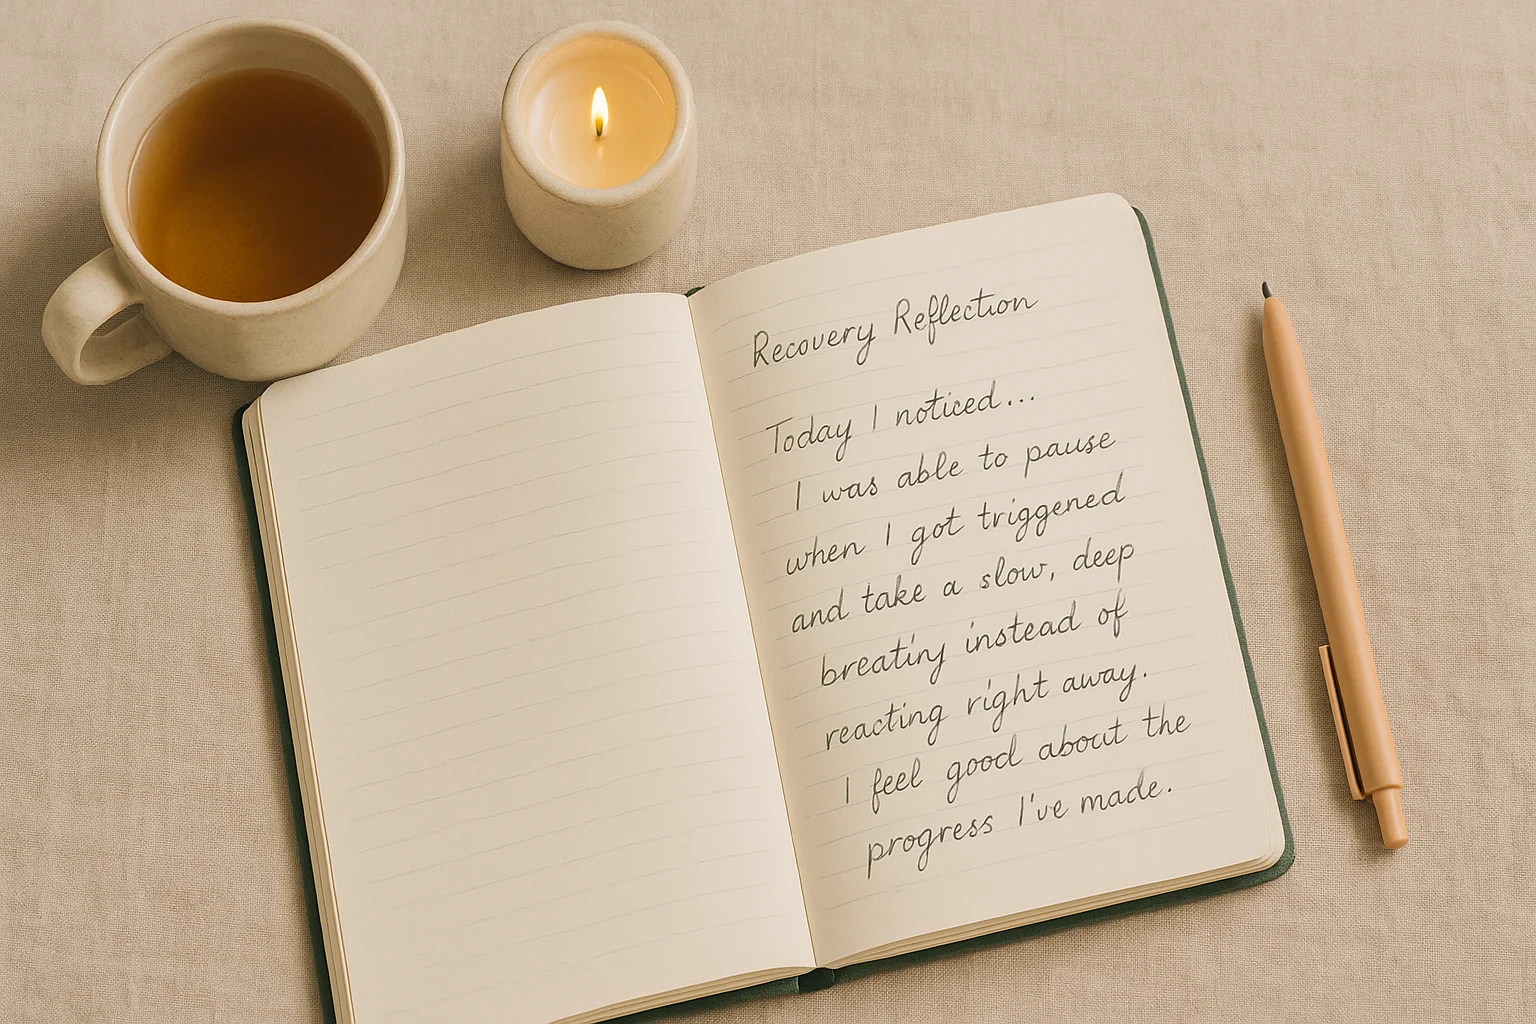 Recovery Reflection
Today I noticed...
I was able to pause
when I got triggered
and take a slow, deep
breatiny instead of
reacting right away.
I feel good about the
progress I've made.